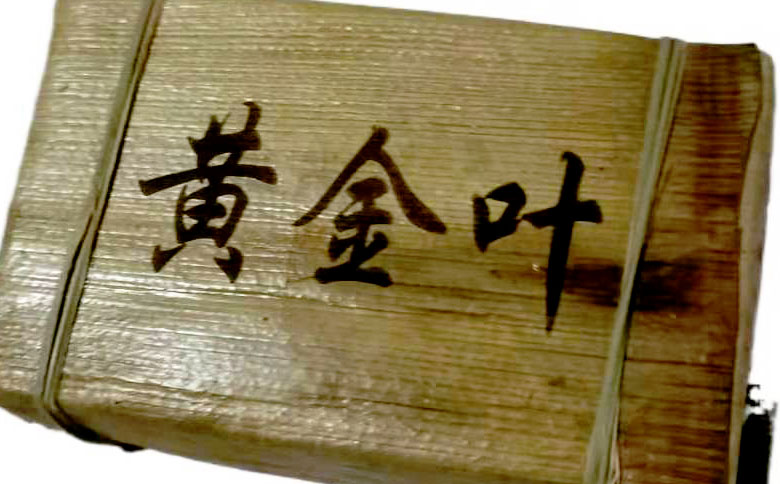 黄金叶